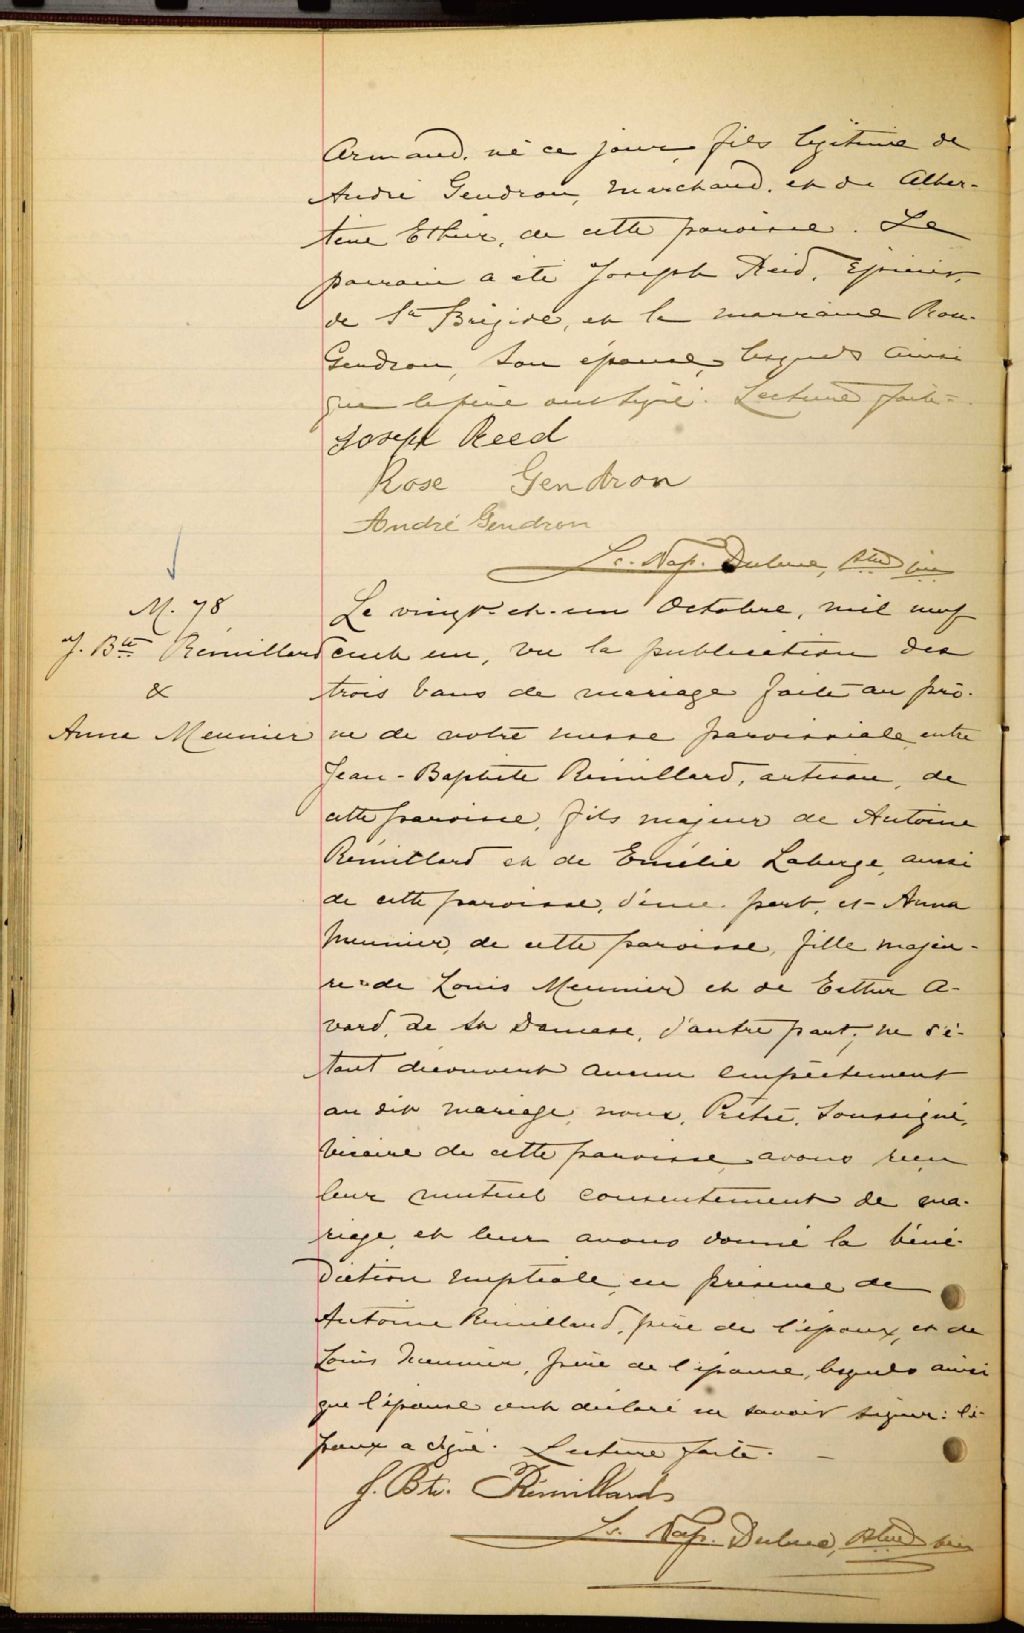 Armand, né ce jour, fils légitime de
André Gendron, marchand, et de Alber-
tine Ethier, de cette paroisse. Le
parrain a été Joseph Reid, Epicier,
de Ste Brigide, et la marraine Rose
Gendron, son épouse, lesquels ainsi
que le père ont signé. Lecture faite.
Joseph Reed
Rose Gendron
André Gendron
Ls. Nap. Dubuc, Ptre vic
M. 78
J. Bte Rémillard
&
Anna Meunier
Le vingt-et-un Octobre, mil neuf
cent un, vu la publication des
trois bans de mariage faite au prô-
ne de notre messe paroissiale, entre
Jean-Baptiste Rémillard, artisan, de
cette paroisse, fils majeur de Antoine
Rémillard et de Emélie Laberge, aussi
de cette paroisse, d'une part, et Anna
Meunier, de cette paroisse, fille majeu-
re de Louis Meunier et de Esther A-
vard, de St Damase, d'autre part; ne s'é-
tant découvert aucun empêchement
au dit mariage, nous, Prêtre, soussigné,
Vicaire de cette paroisse avons reçu
leur mutuel consentement de ma-
riage, et leur avons donné la béné-
diction nuptiale en présence de
Antoine Rémillard, père de l'époux, et de
Louis Meunier, frère de l'épouse, lesquels ainsi
que l'épouse ont déclaré ne savoir signer: l'é-
poux a signé. Lecture faite. —
J. Bte. Rémillard
Ls. Nap. Dubuc, Ptre vic